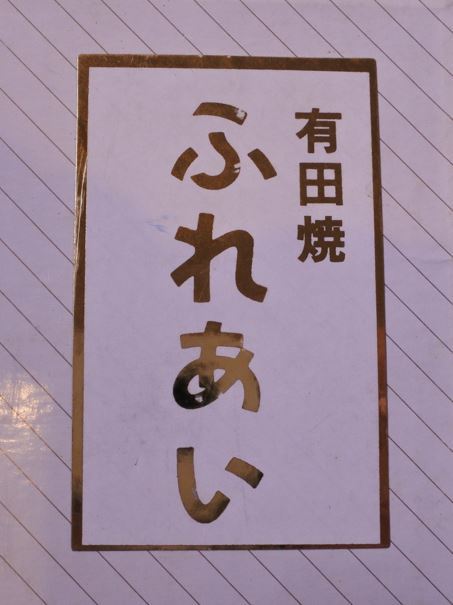 有田焼
ふれあい